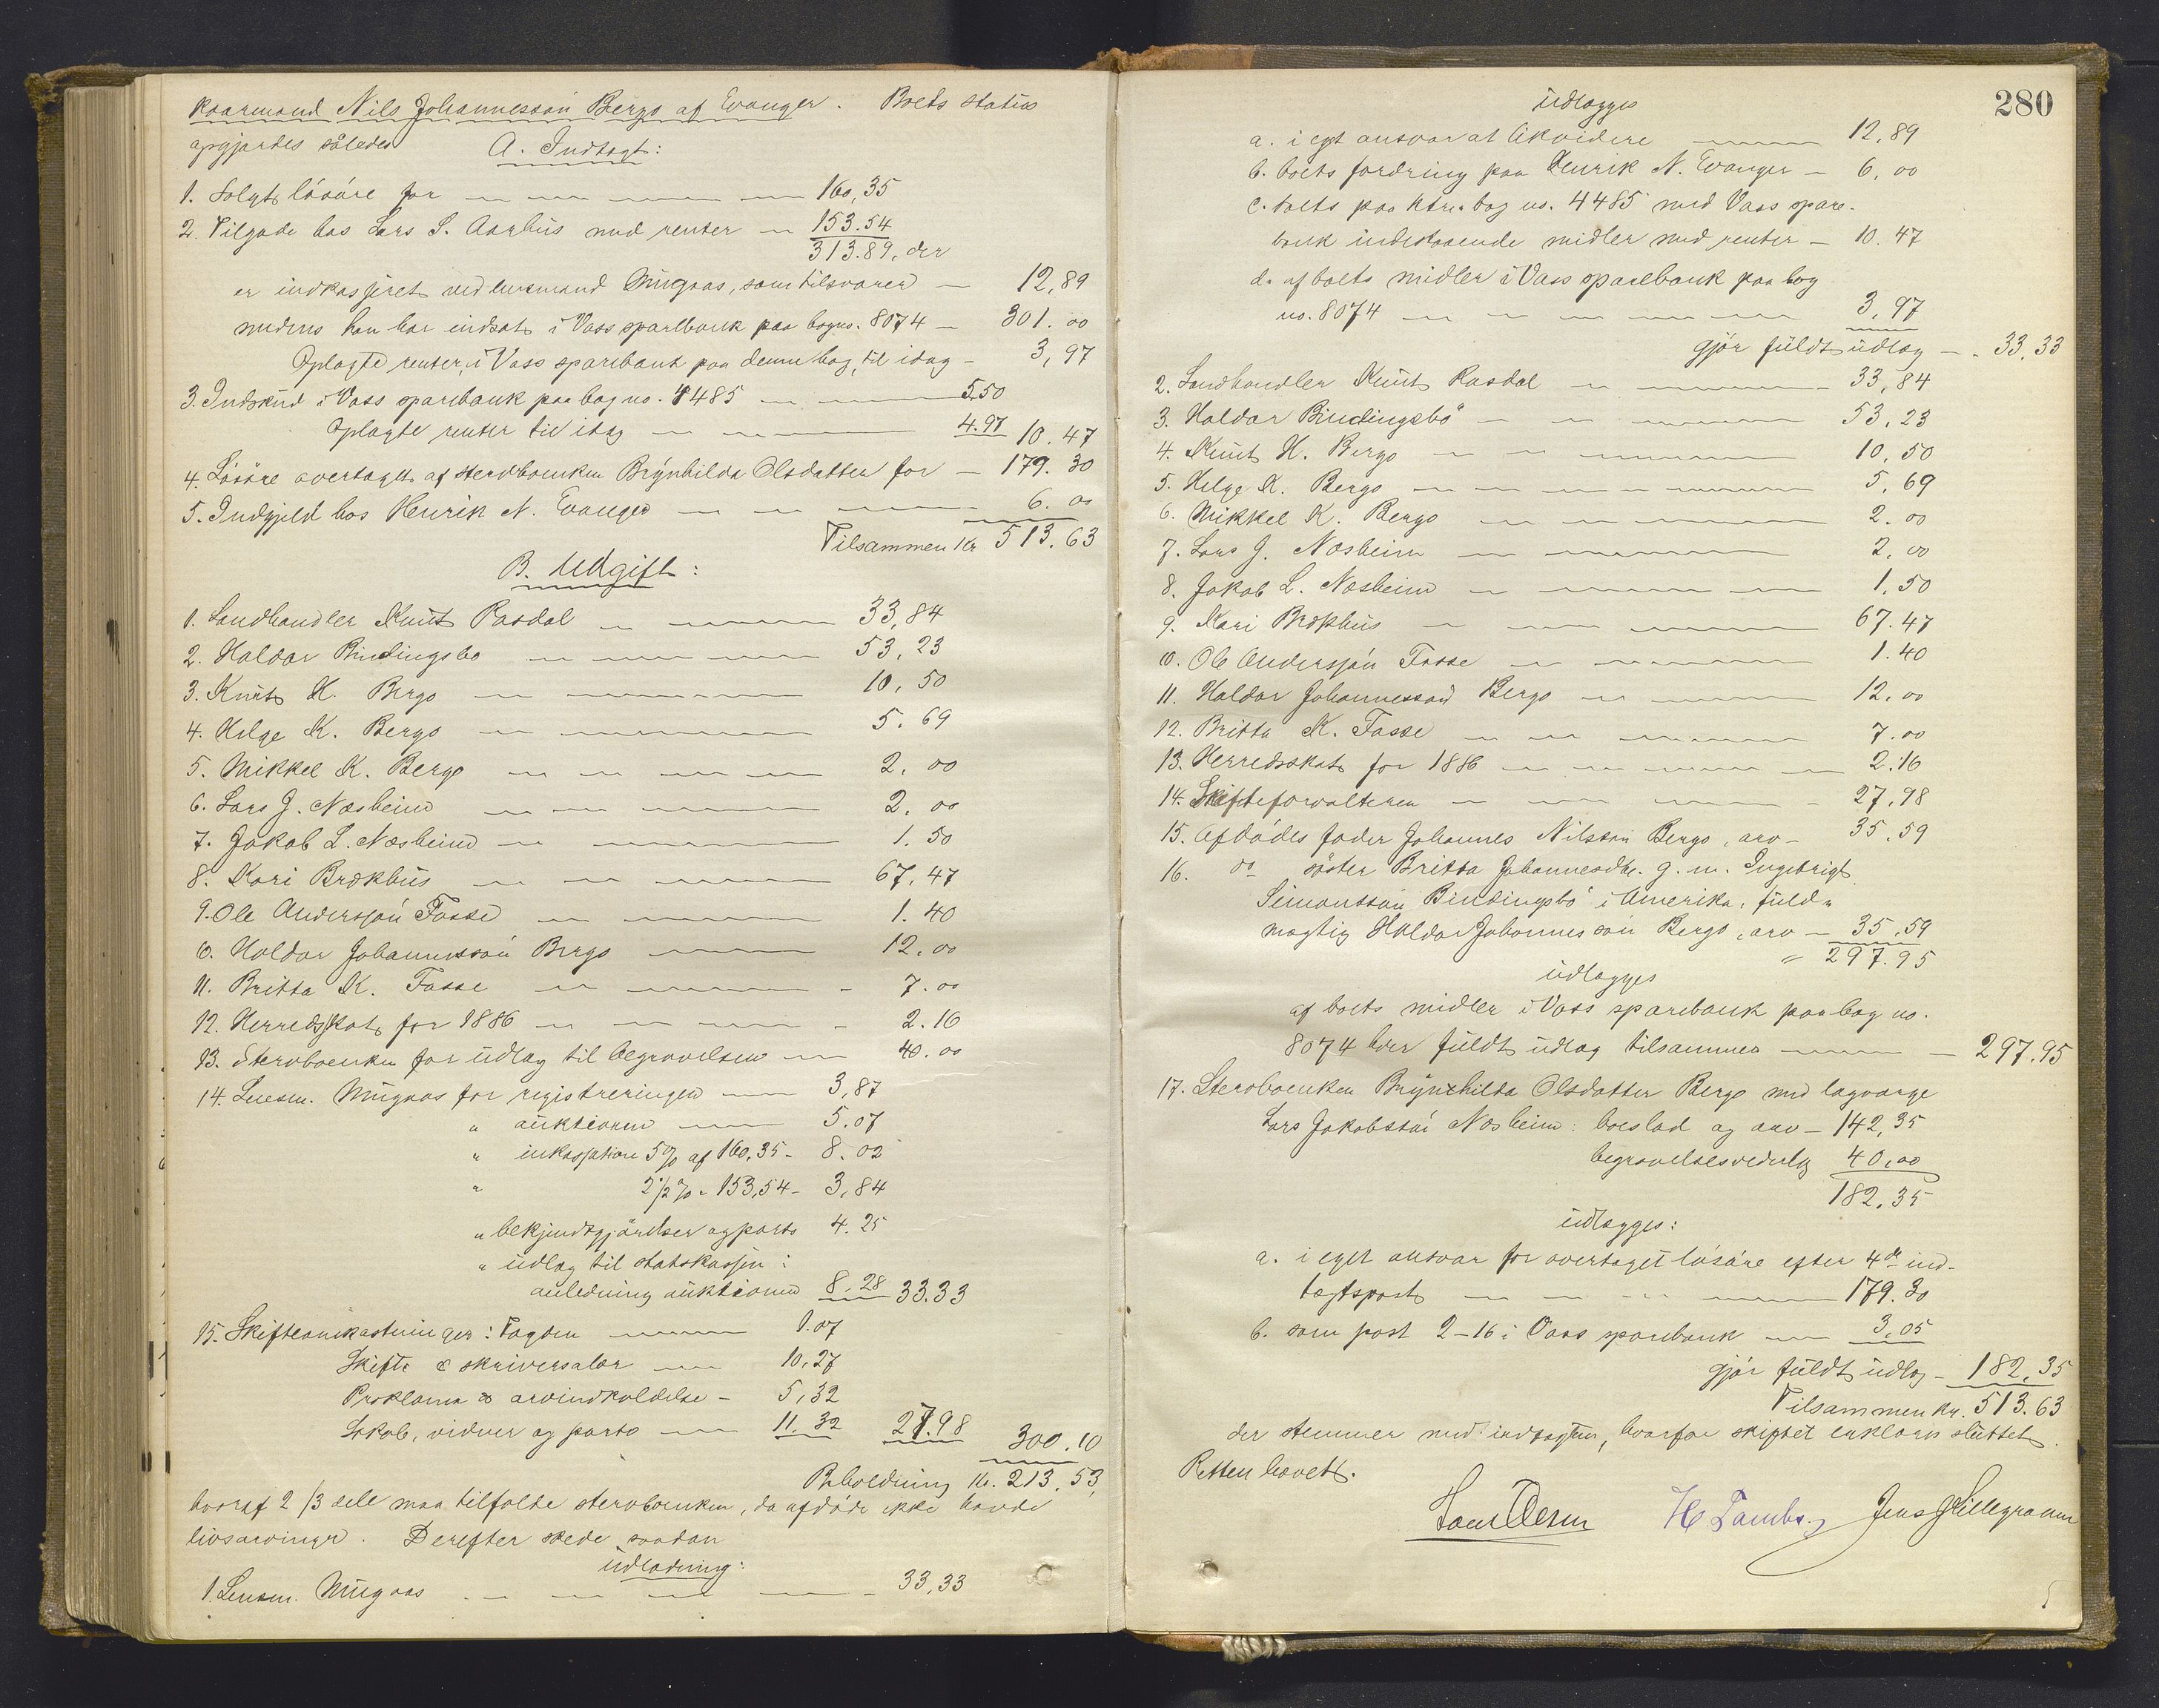 Kaarmand Nils Johannessøn Bergo af Evanger. Boets status
opgjordes således A. Indtægt:
1. Solgt løsøre for 160,35
2. Tilgode hos Lars S. Aarhus med renter 153.54
313.89, der
er indkasseret ved lensmand Mugaas, som tilsvarer 12,89
medens han har indsat i Voss sparebank paa bog no. 8074 301.00
Oplagte renter i Voss sparebank paa denne bog til idag 3,97
3. Indskud i Voss sparebank paa bog no. 4485 5.50
Oplagte renter til idag 4.97 10.47
4. Løsøre overtaget af stervboenken Brynhilda Olsdatter for 179.30
5. Indgjeld hos Henrik N. Evanger 6.00
Tilsammen Kr 513.63
B. Udgift:
1. Landhandler Knut Rasdal 33,84
2. Haldor Bindingsbø 53,23
3. Knut H. Bergo 10,50
4. Helge K. Bergo 5.69
5. Mikkel K. Bergo 2.00
6. Lars J. Næsheim 2.00
7. Jakob L. Næsheim 1.50
8. Kari Brækhus 67.47
9. Ole Anderssøn Fosse 1.40
10. Haldor Johannessøn Bergo 12.00
11. Britta K. Fosse 7.00
12. Herredsskat for 1886 2.16
13. Stervboenken for udlæg til begravelsen 40.00
14. Lensm. Mugaas for registreringen 3,87
" auktionen 5.07
" inkassation 5% af 160,35 - 8.02
" 2½% " 153,54 - 3,84
" bekjendtgjørelser og porto 4.25
" udlæg til statskassen i
anledning auktionen 8.28 33.33
15. Skifteomkostninger: Fogden 1.07
Skifte & skriversalær 10,27
Proklama & arveindkaldelse - 5,32
Lokale, vidner og porto 11.32 27.98 300.10
Beholdning Kr. 213.53,
hvoraf 2/3 dele maa tilfalde stervboenken, da afdøde ikke havde
livsarvinger. Derefter skede saadan
udlodning:
1. Lensm. Mugaas 33,33
280
udlægges
a. i eget ansvar at likvidere 12,89
b. boets fordring paa Henrik N. Evanger - 6,00
c. boets paa ktra. bog no. 4485 med Voss spare-
bank indestaaende midler med renter - 10.47
d. af boets midler i Voss sparebank paa bog
no. 8074 3,97
gjør fuldt udlæg - 33,33
2. Landhandler Knut Rasdal 33,84
3. Haldor Bindingsbø 53,23
4. Knut H. Bergo 10,50
5. Helge K. Bergo 5,69
6. Mikkel K. Bergo 2.00
7. Lars J. Næsheim 2,00
8. Jakob L. Næsheim 1,50
9. Kari Brækhus 67.47
10. Ole Anderssøn Fosse 1.40
11. Haldor Johannessøn Bergo 12.00
12. Britta K. Fosse 7.00
13. Herredsskat for 1886 2.16
14. Skifteforvalteren 27,98
15. Afdødes fader Johannes Nilssøn Bergo, arv - 35,59
16. do søster Britta Johannesdtr. g. m. Ingebrigt
Simonssøn Bindingsbø i Amerika, fuld-
mægtig Haldor Johannessøn Bergo, arv - 35,59
297.95
udlægges
af boets midler i Voss sparebank paa bog no.
8074 hver fuldt udlæg tilsammen 297.95
17. Stervboenken Brynhilda Olsdatter Bergo med lagværge
Lars Jakobssøn Næsheim: boeslod og arv - 142,35
begravelsesvederlag 40,00
182,35
udlægges:
a. i eget ansvar for overtaget løsøre efter 4de ind-
tægtspost 179.30
b. som post 2-16 i Voss sparebank 3,05
gjør fuldt udlæg - 182,35
Tilsammen Kr. 513.63
der stemmer med indtægten, hvorfor skiftet erklæres sluttet.
Retten hævet.
H Tambs. Jens Hillegraum